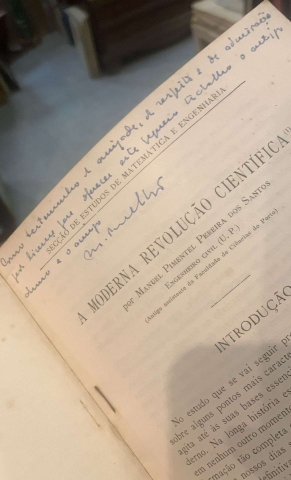 Como testemunho de amizade, de respeito e de admiração
por lhe oferece este pequeno trabalho o antigo
aluno e o amigo
SECÇÃO DE ESTUDOS DE MATEMÁTICA E ENGENHARIA
A MODERNA REVOLUÇÃO CIENTÍFICA (1)
por MANUEL PIMENTEL PEREIRA DOS SANTOS
ENGENHEIRO CIVIL (U. P.)
(Antigo assistente da Faculdade de Ciências do Porto)
INTRODUÇÃO
No estudo que se vai seguir
sobre alguns pontos mais
agita até às suas bases
derno. Na longa história
em nenhum outro momento
tão completa
nossos dias